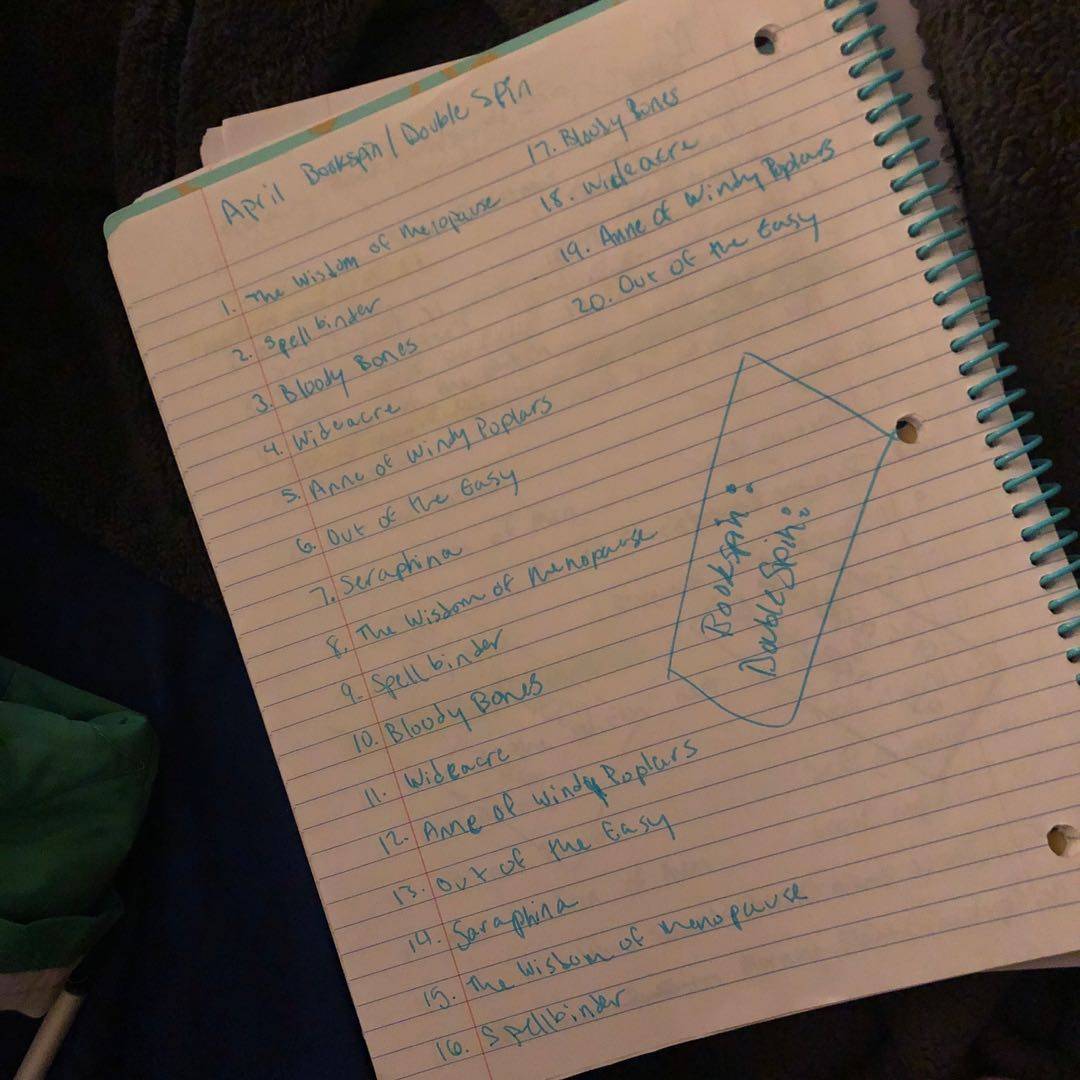 April Bookspin/Double Spin
1. The Wisdom of Menopause
2. Spellbinder
3. Bloody Bones
4. Wideacre
5. Anne of Windy Poplars
6. Out of the Easy
7. Seraphina
8. The Wisdom of Menopause
9. Spellbinder
10. Bloody Bones
11. Wideacre
12. Anne of Windy Poplars
13. Out of the Easy
14. Saraphina
15. The Wisdom of Menopause
16. Spellbinder
17. Bloody Bones
18. Wideacre
19. Anne of Windy Poplars
20. Out of the Easy
Bookspin:
DoubleSpin: